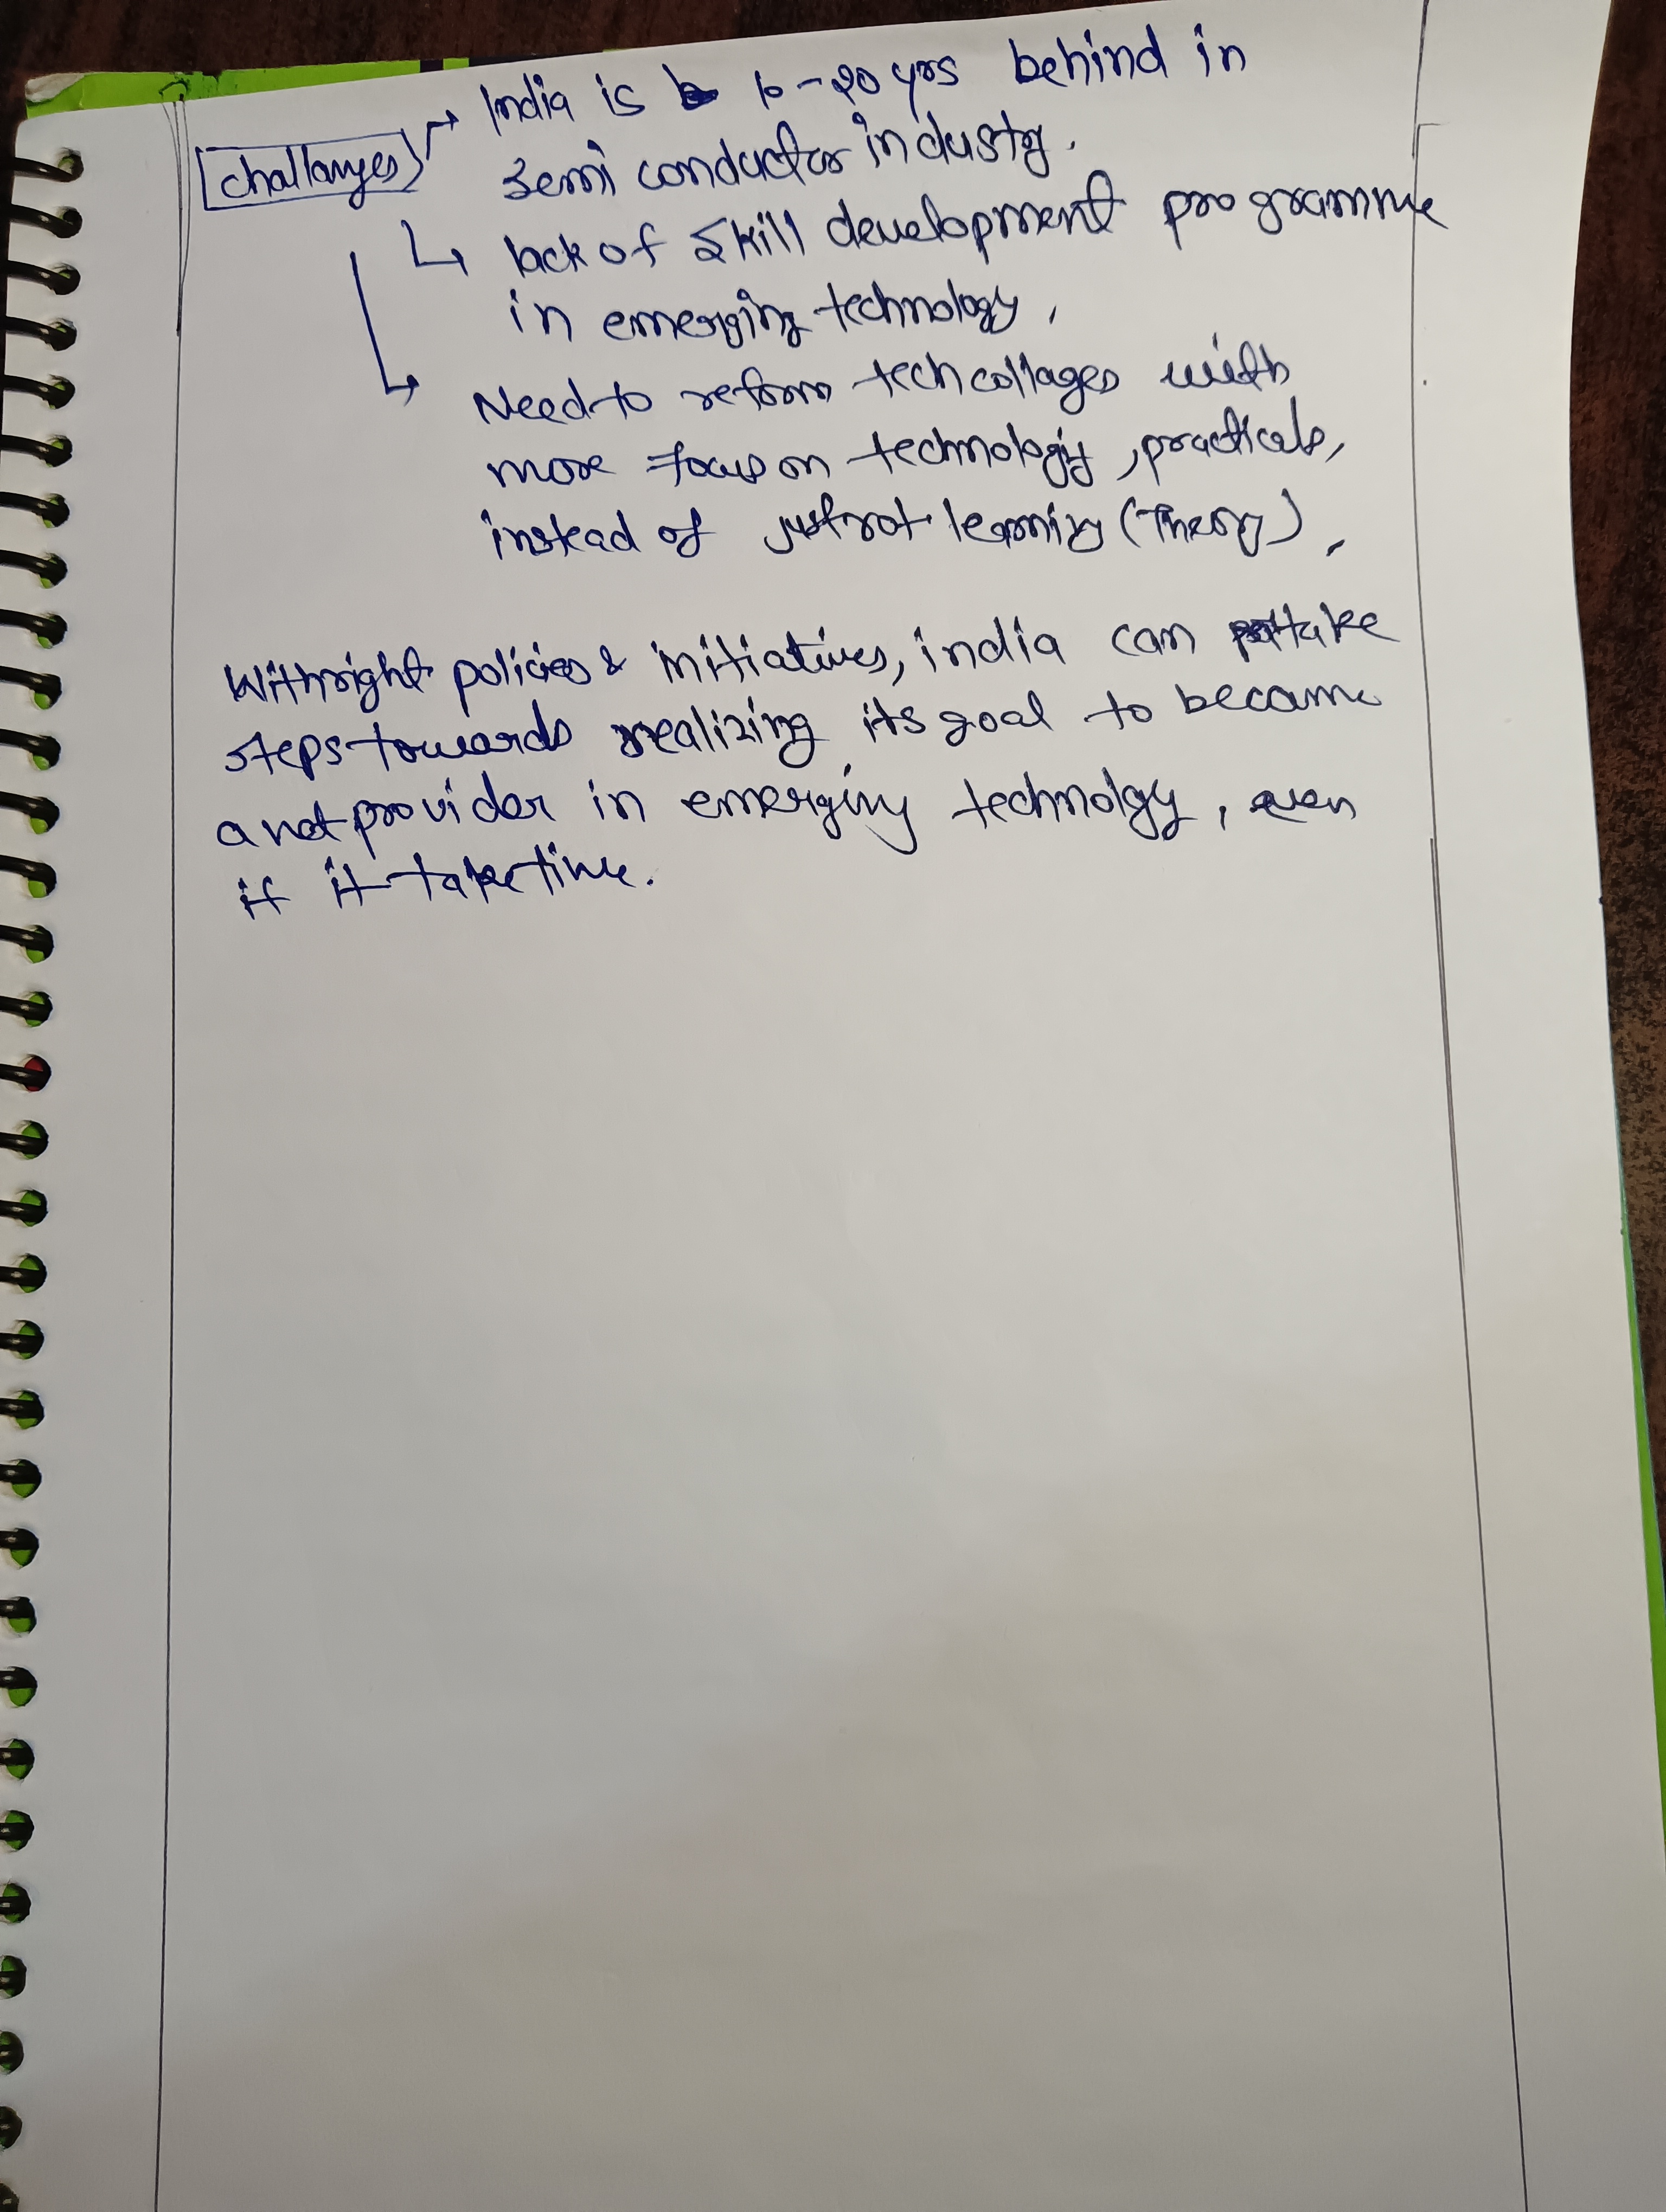 challanges → India is 10-20 yrs behind in
semi conductor industry.
↳ lack of skill development programme
in emerging technology,
↳ Need to reform tech collages with
more focus on technology, practicals,
instead of just rot learning (Theory),
With right policies & initiatives, india can take
steps towards realizing its goal to became
a net provider in emerging technolgy, even
if it take time.